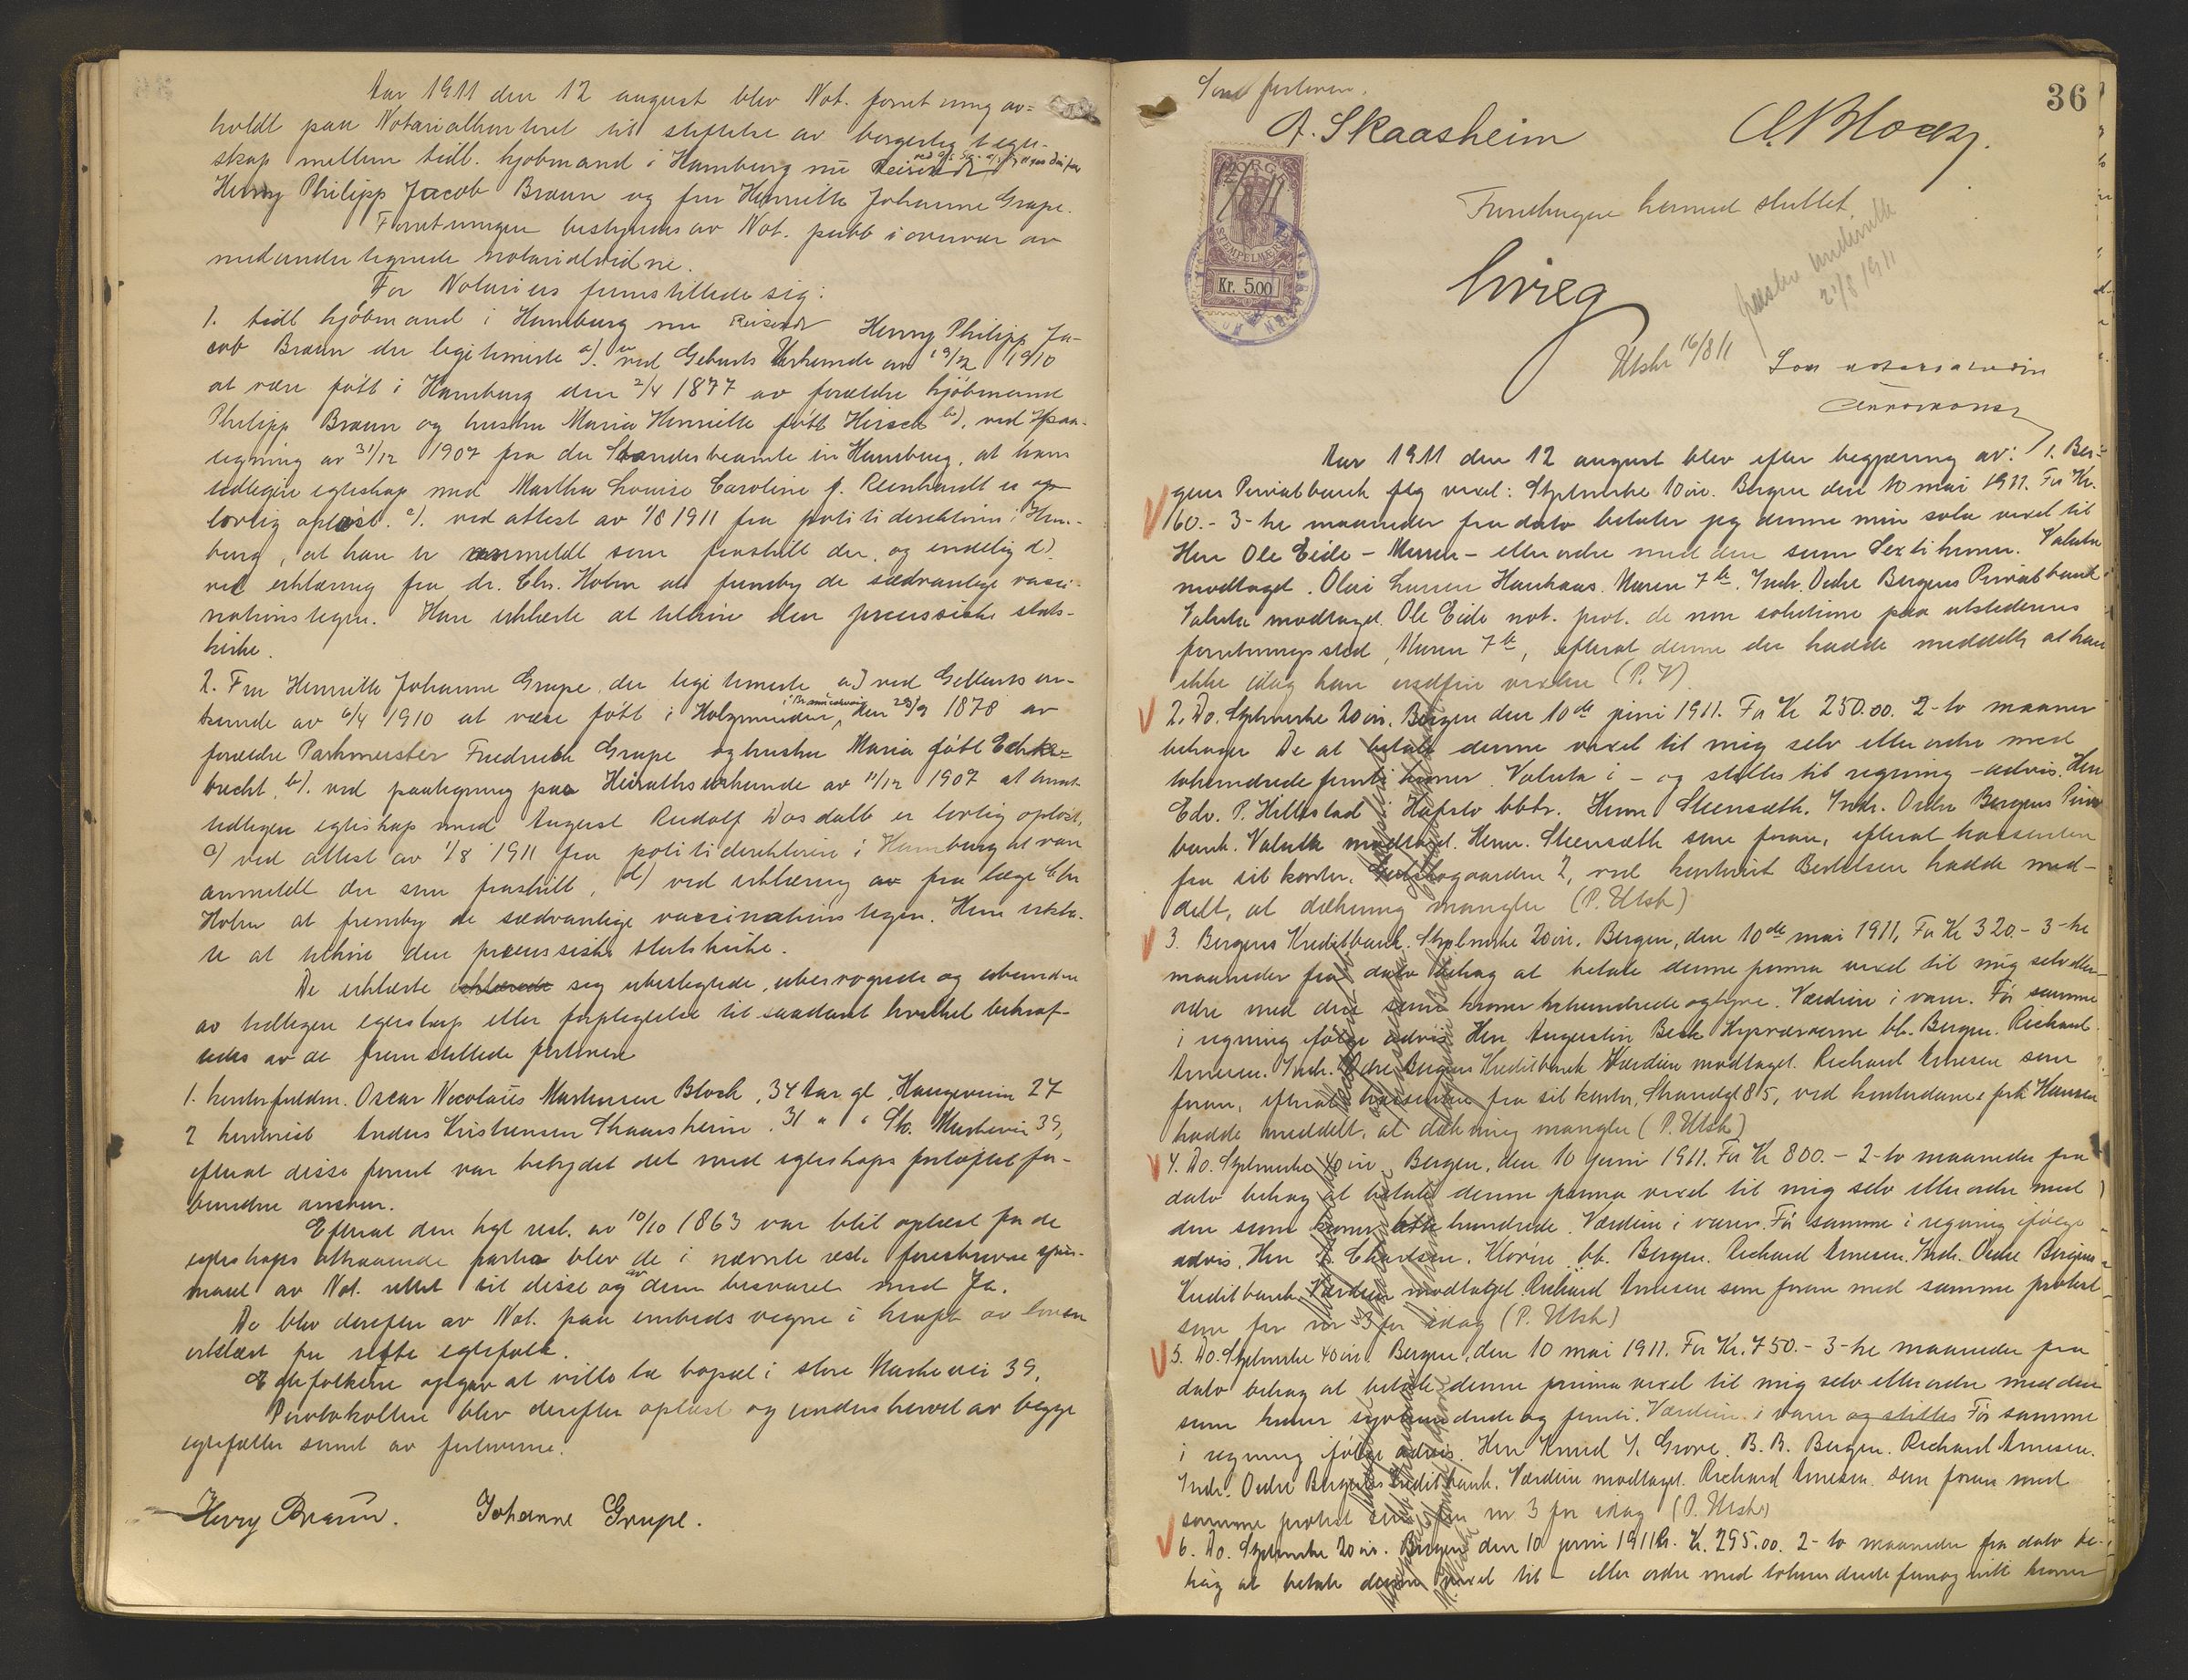 Aar 1911 den 12 august blev Not. forretning av=
holdt paa Notarialkontoret til stiftelse av borgerlig egte-
skap mellem tidl. kjøbmand i Hamburg nu Reisende
Henry Philipp Jacob Braun og fru Henriette Johanne Grupe.
Forretningen bestyredes av Not. publ i overvær av
medundertegnede notarialvidne.
For Notarius fremstillede sig:
1. tidl kjøbmand i Hamburg nu Reisende Henry Philipp Ja-
cob Braun der legitimerte a). ved Geburts Urkunde av 19/12 1910
at være født i Hamburg den 2/4 1877 av forældre kjøbmand
Philipp Braun og hustru Maria Henriette født Hirsch b). ved paa-
tegning av 31/12 1907 fra der Standesbeamte in Hamburg, at hans
tidligere egteskap med Martha Louise Caroline f. Reinhardt er
lovlig opløst. c). ved attest av 1/8 1911 fra politidirektøren i Ham-
burg, at han er anmeldt som fraskilt der, og endelig d).
ved erklæring fra dr. Chr. Holm at fremby de sædvanlige vacci-
nationstegn. Han erklærte at tilhøre den preussiske stats-
kirke.
2. Fru Henriette Johanne Grupe, der legitimerte a) ved Geburts ur-
kunde av 6/4 1910 at være født i Holzminden, i Braunschweig den 29/9 1878 av
forældre Parkmeister Friedrich Grupe og hustru Maria født
brecht, b). ved paategning paa Heirathsurkunde av 11/12 1907 at hendes
tidligere egteskap med August Rudolf Dosdall er lovlig opløst,
c) ved attest av 1/8 1911 fra politidirektøren i Hamburg at være
anmeldt der som fraskilt, d) ved erklæring av fra læge Chr
Holm at fremby de sædvanlige vaccinationstegn. Hun erklæ-
te at tilhøre den preussiske statskirke.
De erklærte erklærede sig ubeslegtede, ubesvogrede og ubundne
av tidligere egteskap eller forpligtelse til saadant hvilket bekræf-
tedes av de fremstillede forlovere
1. kontorfuldm. Oscar Nicolaus Martinsen Bloch, 34 aar gl, Haugeveien 27
2 kontorist Anders Kristensen Skaasheim, 31 " " St. Markevei 39,
efterat disse forut var betydet det med egteskaps forløftet for-
bundne ansvar.
Efterat den kgl resl. av 10/10 1863 var blit oplæst for de
egteskaps attraaende parter blev de i nævnte resl. foreskrevne spørs-
maal av Not. rettet til disse og av dem besvaret med Ja.
De blev derefter av Not. paa embeds vegne i kraft av loven
erklært for rette egtefolk.
Egtefolkene opgav at ville ta bopæl i store Markevei 39.
Protokollen blev derefter oplæst og underskrevet av begge
egtefæller samt av forloverne.
Henry Braun. Johanne Grupe.
36
Som forlovere.
A. Skaasheim O. Bloch.
NORGE
12/8 11
STEMPELMÆRKE
Kr. 5.00
Forretningen hermed sluttet.
21/8 1911
Utskr 16/8 11 Som notarialvidne
Aar 1911 den 12 august blev efter begjæring av: 1. Ber-
gens Privatbank flg vexel: Stplmrke 10 øre. Bergen den 10 mai 1911. For Kr.
60.- 3-tre maaneder fra dato betaler jeg denne min sola vexel til
Herr Ole Eide - Muren - eller ordre med den sum Sexti kroner. Valuta
modtaget. Olai Larsen Hauhaus. Muren 7 b. Indr. Ordre Bergens Privatbank
Valuta modtaget. Ole Eide not. prot. de non solutione paa utstederens
forretningssted, Muren 7 b, efterat denne der hadde meddelt, at han
ikke idag kan indfri vexlen (P. V)
2. Do. Stplmrke 20 øre. Bergen den 10de juni 1911. For Kr 250.00. 2-to maaneder
behager De at betale denne vexel til mig selv eller ordre med
tohundrede femti kroner Valuta i - og stilles til regning - advis. Herr
Edv. P. Hillestad i Hafslo bbtr. Herm Steensæth. Indr. Ordre Bergens Privat
bank. Valuta modtaget. Herm. Steensæth som foran, efterat trassenten
fra sit kontor, 2, ved kontorist Bertelsen hadde med-
delt, at dækning mangler (P. Utsk)
3. Bergens Kreditbank. Stplmrke 20 øre. Bergen, den 10de mai 1911, For Kr 320.- 3-tre
maaneder fra dato behag at betale denne prima vexel til mig selv eller
ordre med den sum kroner trehundrede og tyve. Værdien i varer. Før samme
i regning ifølge advis Herr Augustin Beck bb. Bergen. Richard
Arnesen. Indr. Ordre Bergens Kreditbank Værdien modtaget. Richard Arnesen som
foran, efterat trassenten fra sit kontor, Strandgt 85, ved kontordame frk Hansen
hadde meddelt, at dækning mangler (P. Utsk)
4. Do. Stplmrke 40 øre Bergen, den 10 juni 1911. For Kr 800.- 2-to maaneder fra
dato behag at betale denne prima vexel til mig selv eller ordre med
den sum kroner otte hundrede. Værdien i varer. Før samme i regning ifølge
advis. Herr bb. Bergen. Richard Arnesen. Indr. Ordre Bergens
Kreditbank Værdien modtaget. Richard Arnesen som foran med samme protest
som for nr 3 for idag (P. Utsk)
5. Do. Stplmrke 40 øre. Bergen, den 10 mai 1911. For Kr. 750.- 3-tre maaneder fra
dato behag at betale denne prima vexel til mig selv eller ordre med den
sum kroner syvhundrede og femti. Værdien i varer og stilles Før samme
i regning ifølge advis. Herr Knud Y. Grove. B. B. Bergen. Richard Arnesen.
Indr. Ordre Bergens Kreditbank. Værdien modtaget. Richard Arnesen som foran med
samme protest som for nr 3 for idag (P. Utsk)
6. Do. Stplmrke 20 øre. Bergen den 10 juni 1911 Kr. 295.00. 2-to maaneder fra dato be-
hag at betale denne vexel til - eller ordre med tohundrede femognitti kroner